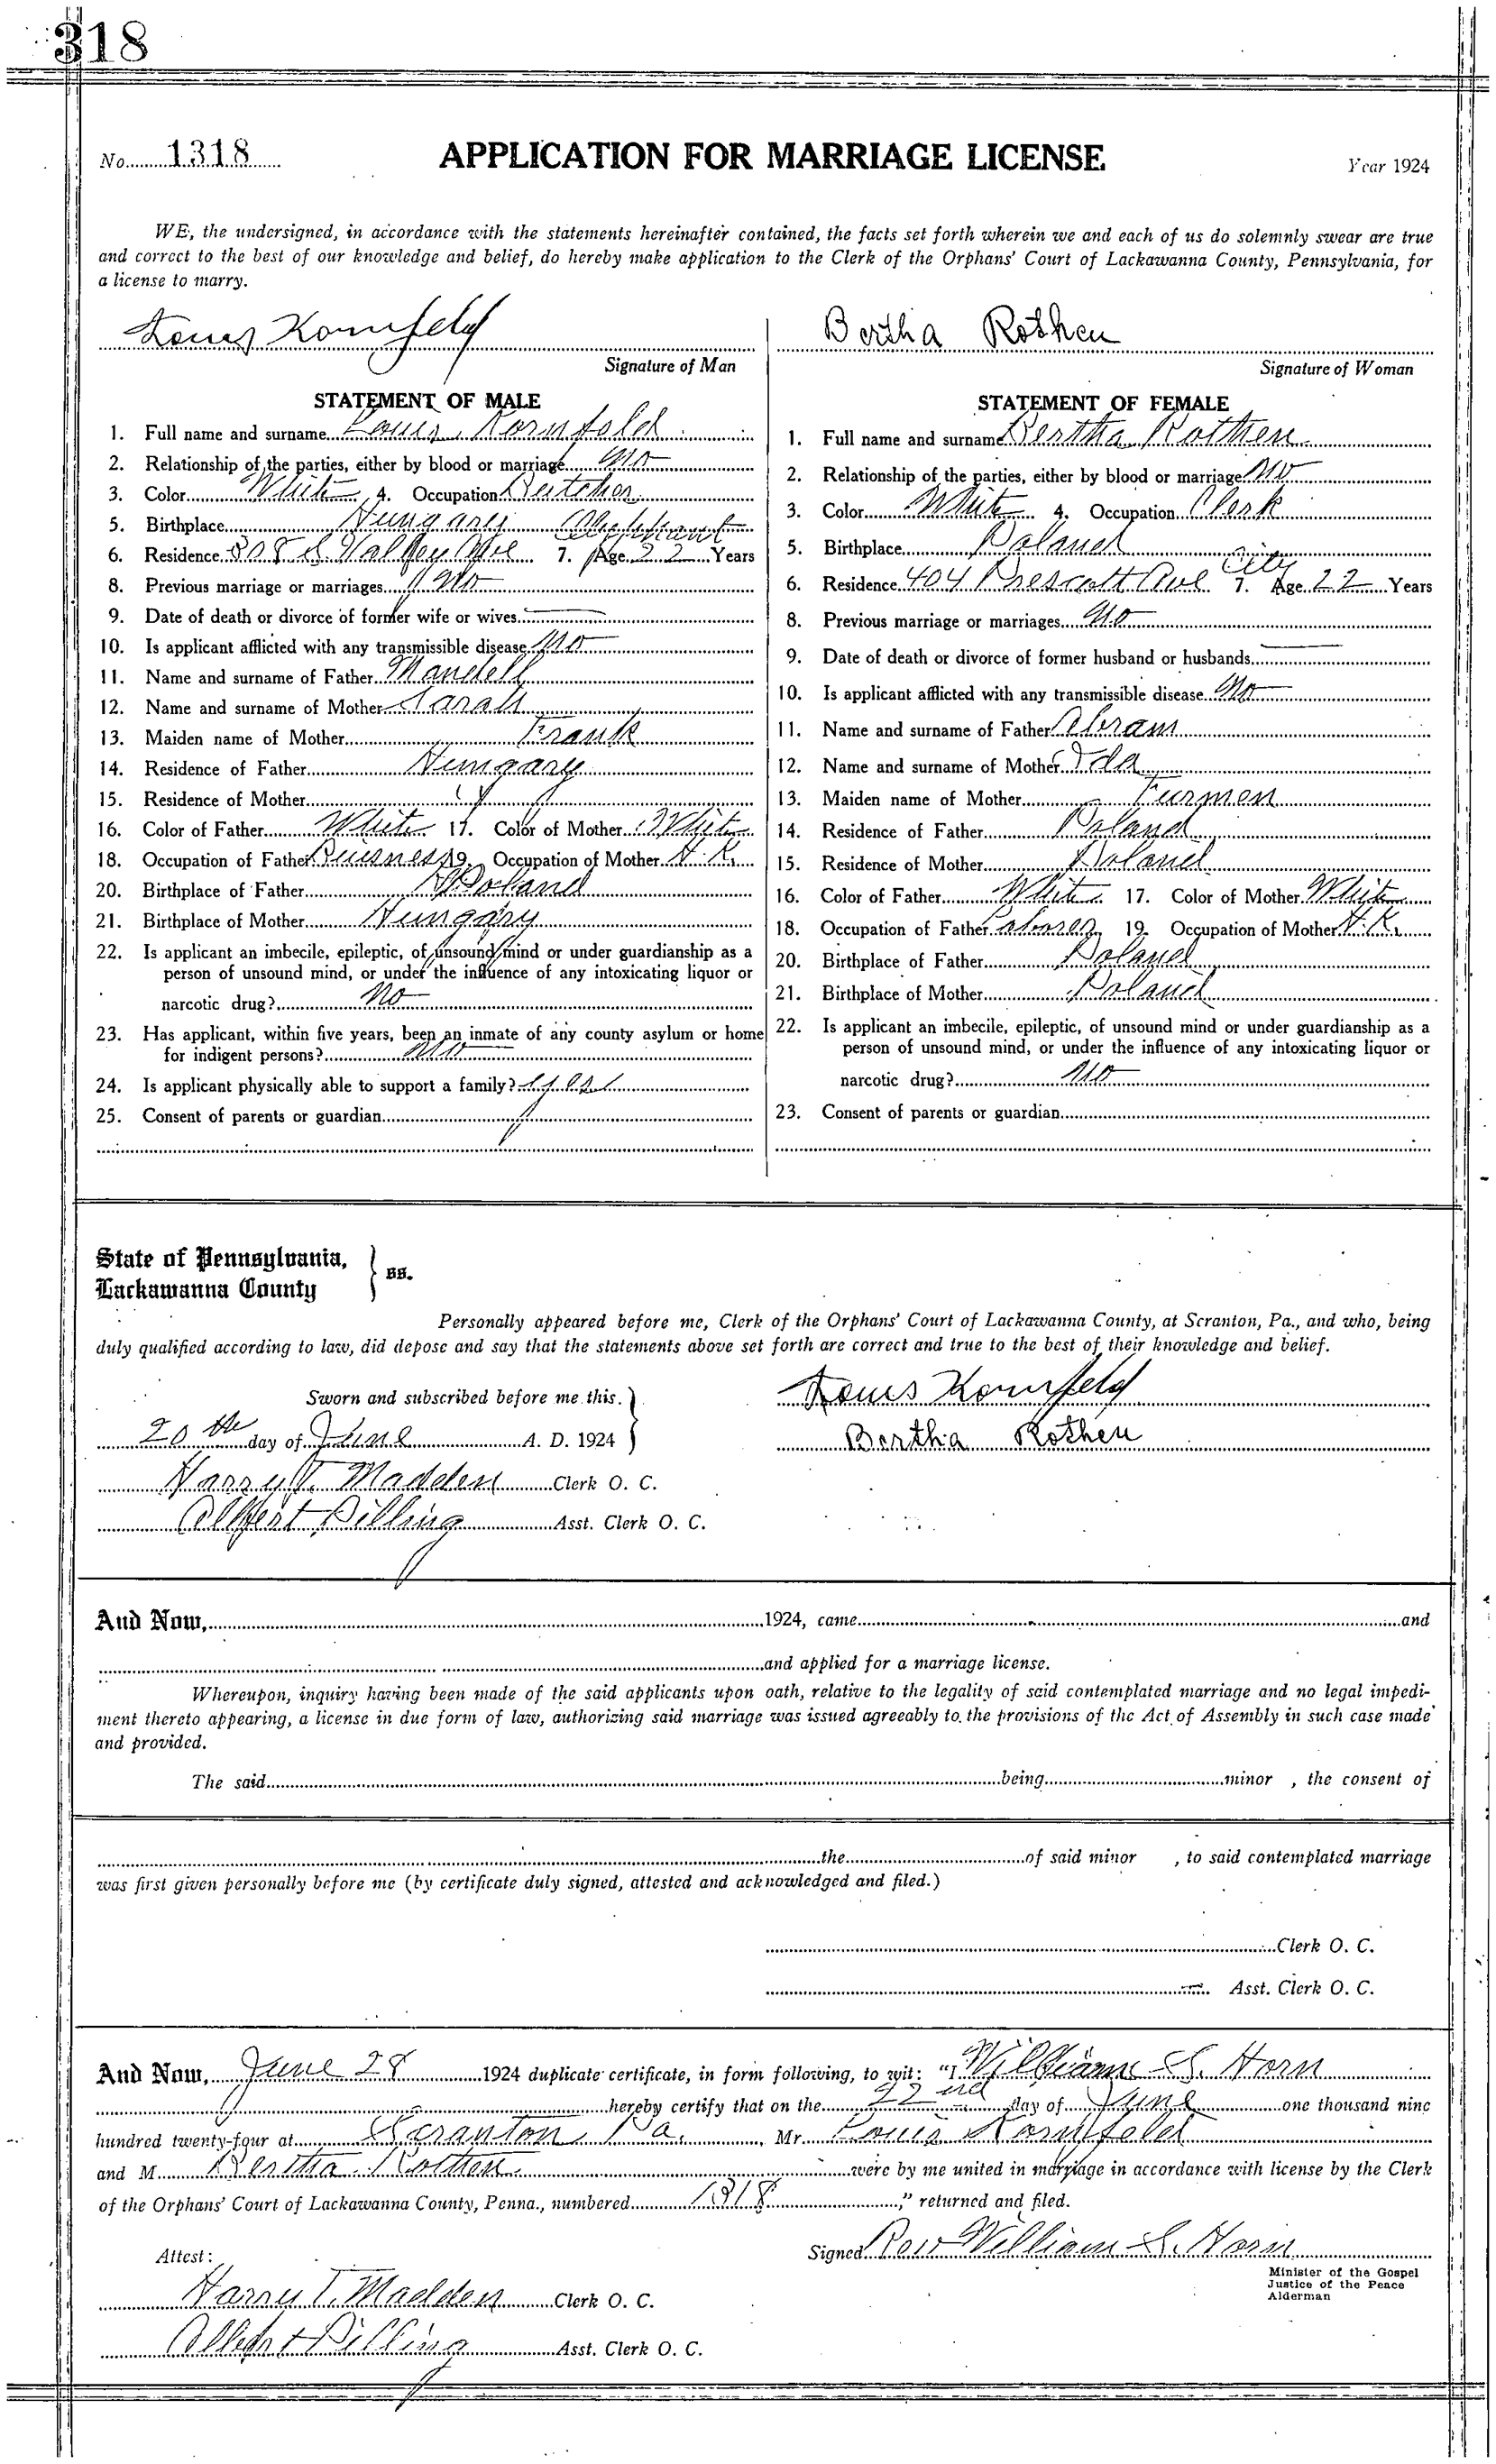 318
No. 1318 APPLICATION FOR MARRIAGE LICENSE Year 1924
WE, the undersigned, in accordance with the statements hereinafter contained, the facts set forth wherein we and each of us do solemnly swear are true
and correct to the best of our knowledge and belief, do hereby make application to the Clerk of the Orphans' Court of Lackawanna County, Pennsylvania, for
a license to marry.
Louis Kornfeld
Signature of Man
STATEMENT OF MALE
1. Full name and surname Louis Kornfeld
2. Relationship of the parties, either by blood or marriage No
3. Color White 4. Occupation Butcher
5. Birthplace Hungary Olyphant
6. Residence 308 S Valley Ave 7. Age 22 Years
8. Previous marriage or marriages No
9. Date of death or divorce of former wife or wives
10. Is applicant afflicted with any transmissible disease No
11. Name and surname of Father Mandell
12. Name and surname of Mother Sarah
13. Maiden name of Mother Frank
14. Residence of Father Hungary
15. Residence of Mother "
16. Color of Father White 17. Color of Mother White
18. Occupation of Father Buisness 19. Occupation of Mother H.K.
20. Birthplace of Father Poland
21. Birthplace of Mother Hungary
22. Is applicant an imbecile, epileptic, of unsound mind or under guardianship as a
person of unsound mind, or under the influence of any intoxicating liquor or
narcotic drug? No
23. Has applicant, within five years, been an inmate of any county asylum or home
for indigent persons? No
24. Is applicant physically able to support a family? yes
25. Consent of parents or guardian
Bertha Rothen
Signature of Woman
STATEMENT OF FEMALE
1. Full name and surname Bertha Rothen
2. Relationship of the parties, either by blood or marriage No
3. Color White 4. Occupation Clerk
5. Birthplace Poland
6. Residence 404 Prescott Ave City 7. Age 22 Years
8. Previous marriage or marriages No
9. Date of death or divorce of former husband or husbands
10. Is applicant afflicted with any transmissible disease No
11. Name and surname of Father Abram
12. Name and surname of Mother Ida
13. Maiden name of Mother Furmen
14. Residence of Father Poland
15. Residence of Mother Poland
16. Color of Father White 17. Color of Mother White
18. Occupation of Father 19. Occupation of Mother H.K.
20. Birthplace of Father Poland
21. Birthplace of Mother Poland
22. Is applicant an imbecile, epileptic, of unsound mind or under guardianship as a
person of unsound mind, or under the influence of any intoxicating liquor or
narcotic drug? No
23. Consent of parents or guardian
State of Pennsylvania,
Lackawanna County } ss.
Personally appeared before me, Clerk of the Orphans' Court of Lackawanna County, at Scranton, Pa., and who, being
duly qualified according to law, did depose and say that the statements above set forth are correct and true to the best of their knowledge and belief.
Sworn and subscribed before me this
20th day of June A. D. 1924 }
Harry T. Madden Clerk O. C.
Albert Pilling Asst. Clerk O. C.
Louis Kornfeld
Bertha Rothen
And Now, 1924, came and
and applied for a marriage license.
Whereupon, inquiry having been made of the said applicants upon oath, relative to the legality of said contemplated marriage and no legal impedi-
ment thereto appearing, a license in due form of law, authorizing said marriage was issued agreeably to the provisions of the Act of Assembly in such case made
and provided.
The said being minor , the consent of
the of said minor , to said contemplated marriage
was first given personally before me (by certificate duly signed, attested and acknowledged and filed.)
Clerk O. C.
Asst. Clerk O. C.
And Now, June 28 1924 duplicate certificate, in form following, to wit: "I William S. Horn
hereby certify that on the 22nd day of June one thousand nine
hundred twenty-four at Scranton Pa. Mr. Louis Kornfeld
and M Bertha Rothen were by me united in marriage in accordance with license by the Clerk
of the Orphans' Court of Lackawanna County, Penna., numbered 1318 ," returned and filed.
Signed Rev William S. Horn
Minister of the Gospel
Justice of the Peace
Alderman
Attest:
Harry T. Madden Clerk O. C.
Albert Pilling Asst. Clerk O. C.